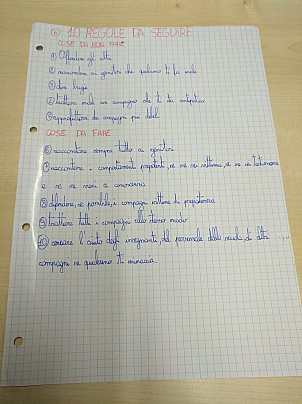 10 REGOLE DA SEGUIRE
COSE DA NON FARE
① Offendere gli altri
② nascondere ai genitori che qualcuno ti fa male
③ dire bugie
④ trattare male un compagno che ti sta antipatico
⑤ approfittare dei compagni più deboli
COSE DA FARE
⑥ raccontare sempre tutto ai genitori
⑦ raccontare i comportamenti prepotenti, se ne sei vittima, se ne sei testimone
e se ne vieni a conoscenza
⑧ difendere, se possibile, i compagni vittime di prepotenza
⑨ trattare tutti i compagni allo stesso modo
⑩ cercare l'aiuto degli insegnanti del personale della scuola di altri
compagni se qualcuno ti minaccia.